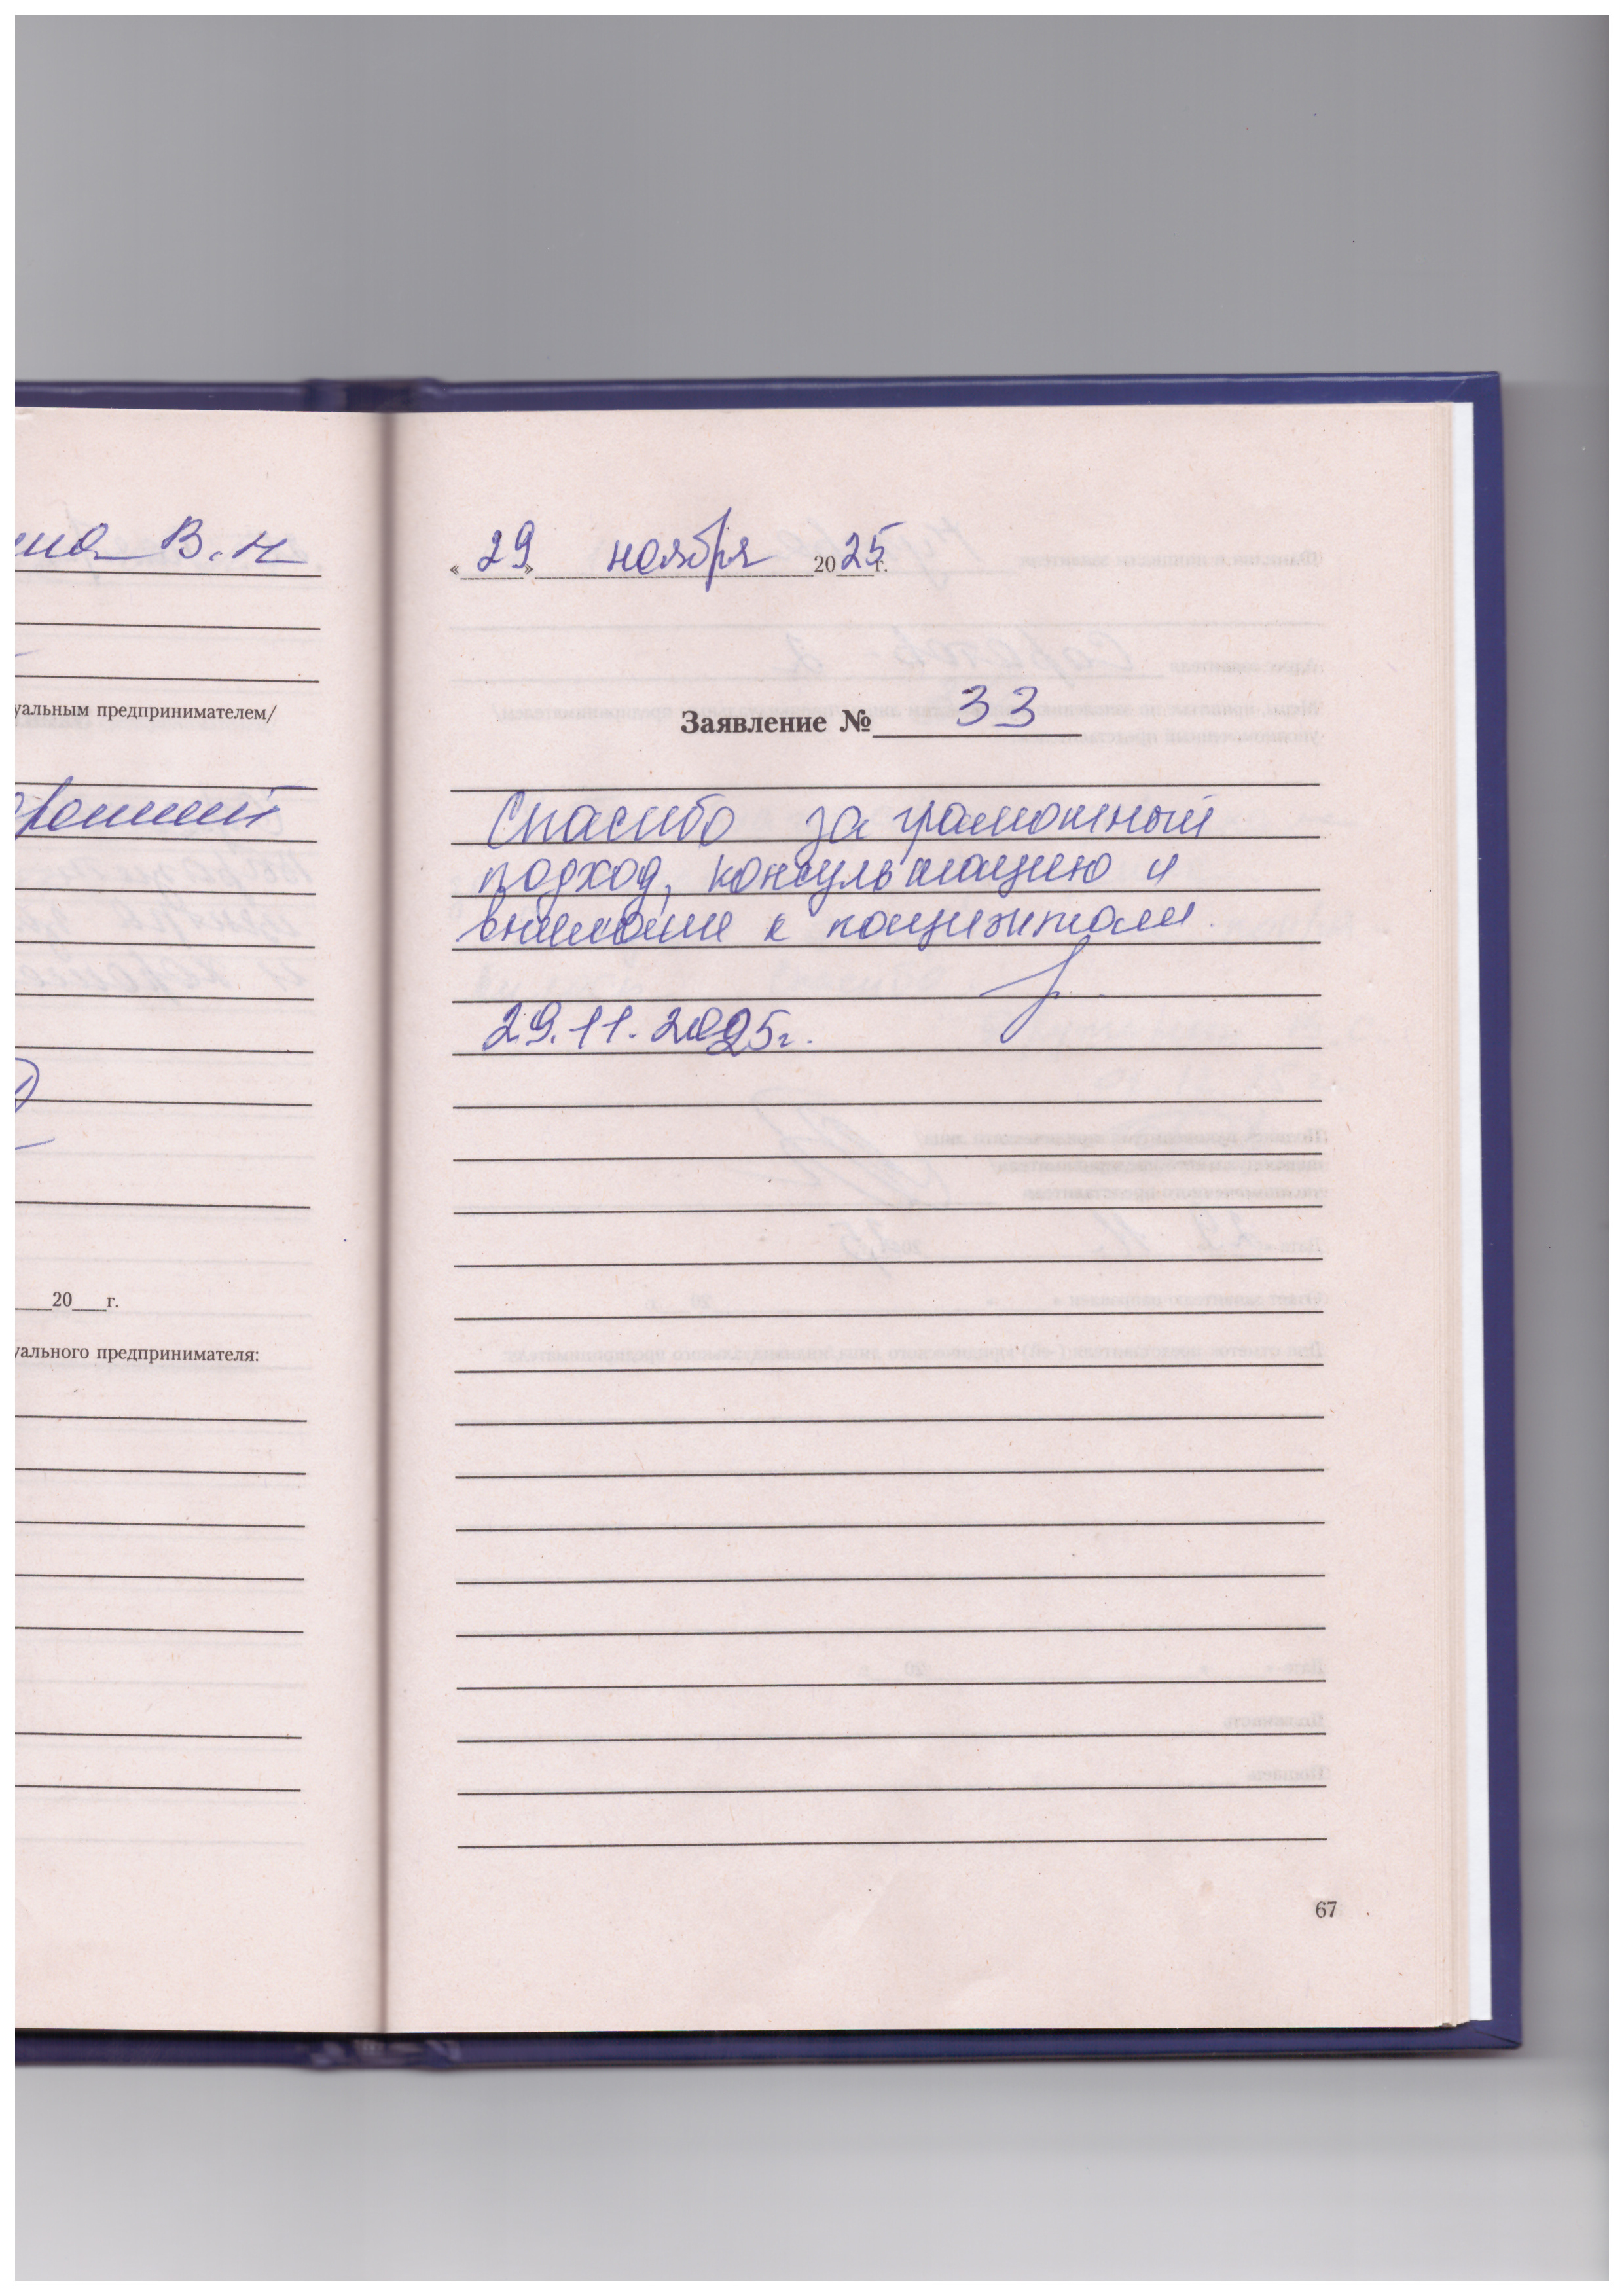 В. Н
уальным предпринимателем/
20 г.
уального предпринимателя:
« 29 » ноября 2025 г.
Заявление № 33
Спасибо за грамотный
подход, консультацию и
внимание к пациентам.
29.11.2025г.
67